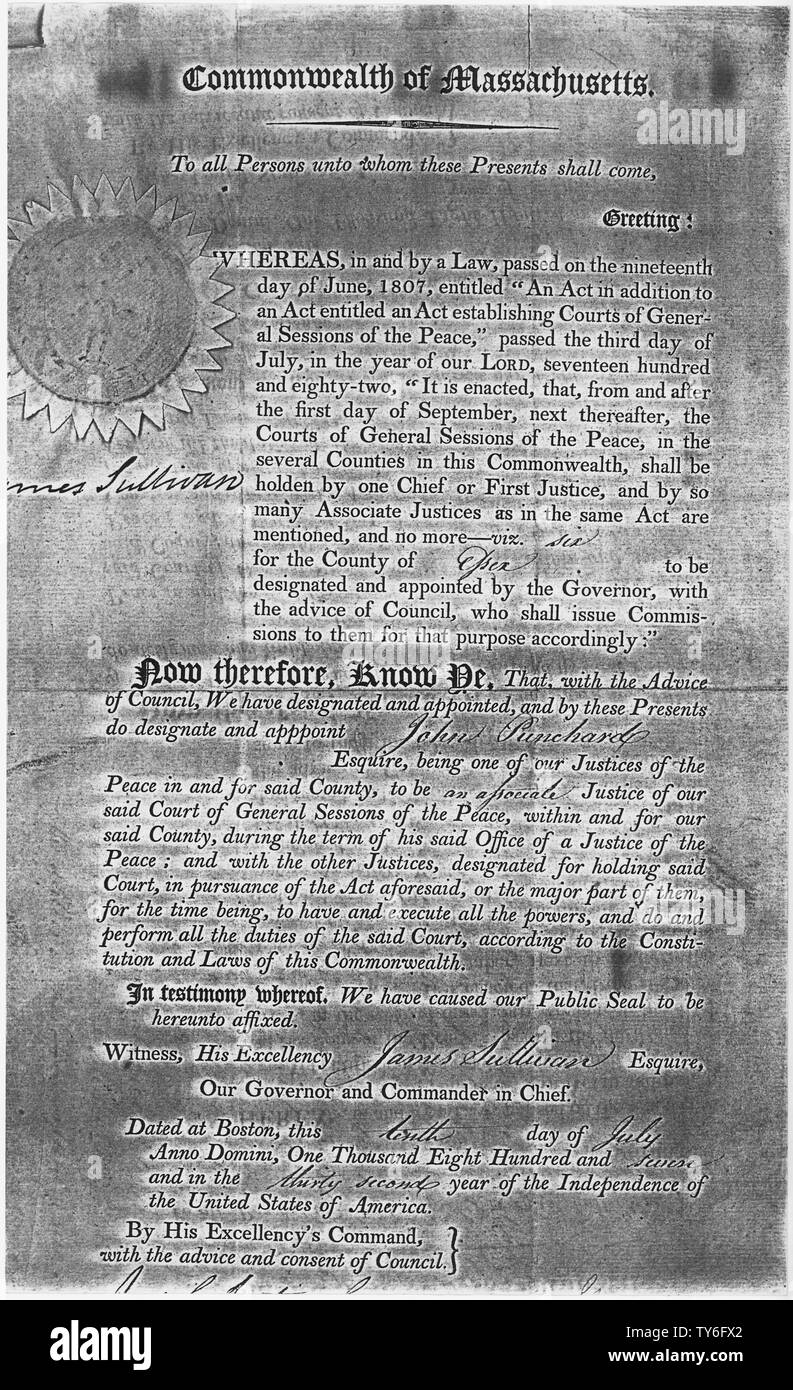 Commonwealth of Massachusetts.
To all Persons unto whom these Presents shall come,
Greeting:
WHEREAS, in and by a Law, passed on the nineteenth
day of June, 1807, entitled "An Act in addition to
an Act entitled an Act establishing Courts of Gener-
al Sessions of the Peace," passed the third day of
July, in the year of our LORD, seventeen hundred
and eighty-two, "It is enacted, that, from and after
the first day of September, next thereafter, the
Courts of General Sessions of the Peace, in the
several Counties in this Commonwealth, shall be
James Sullivan
holden by one Chief or First Justice, and by so
many Associate Justices as in the same Act are
mentioned, and no more—viz. six
for the County of Essex to be
designated and appointed by the Governor, with
the advice of Council, who shall issue Commis-
sions to them for that purpose accordingly:"
Now therefore, Know Ye, That, with the Advice
of Council, We have designated and appointed, and by these Presents
do designate and apppoint John Punchard
Esquire, being one of our Justices of the
Peace in and for said County, to be an associate Justice of our
said Court of General Sessions of the Peace, within and for our
said County, during the term of his said Office of a Justice of the
Peace; and with the other Justices, designated for holding said
Court, in pursuance of the Act aforesaid, or the major part of them,
for the time being, to have and execute all the powers, and do and
perform all the duties of the said Court, according to the Consti-
tution and Laws of this Commonwealth.
In testimony whereof, We have caused our Public Seal to be
hereunto affixed.
Witness, His Excellency James Sullivan Esquire,
Our Governor and Commander in Chief.
Dated at Boston, this tenth day of July
Anno Domini, One Thousand Eight Hundred and seven
and in the thirty second year of the Independence of
the United States of America.
By His Excellency's Command,
with the advice and consent of Council.
alamy
Image ID: TY6FX2
www.alamy.com